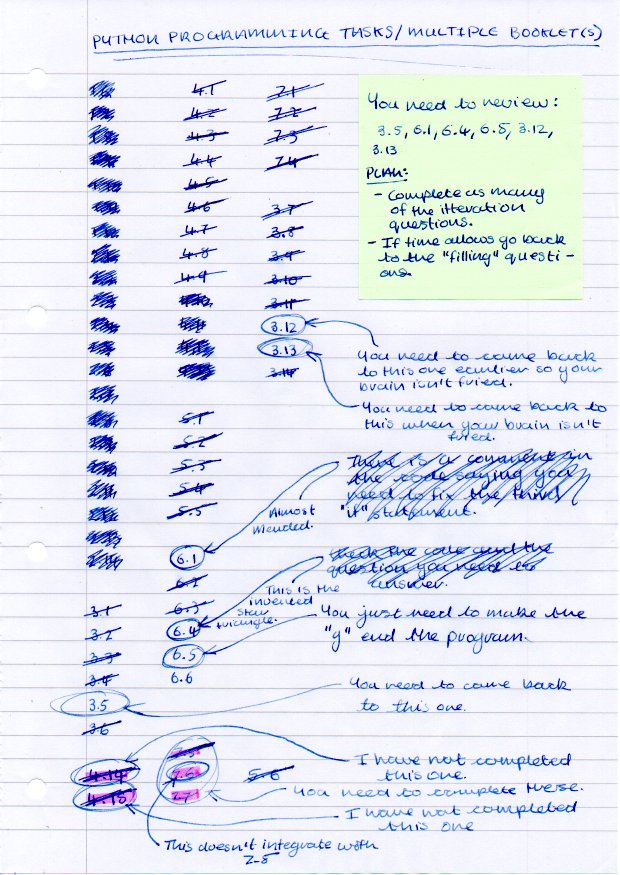 PYTHON PROGRAMMING TASKS/MULTIPLE BOOKLET(S)
4.1 7.1
4.2 7.2
4.3 7.3
4.4 7.4
4.5
4.6 3.7
4.7 3.8
4.8 3.9
4.9 3.10
3.11
3.12
3.13
3.14
You need to review:
3.5, 6.1, 6.4, 6.5, 3.12,
3.13
PLAN:
- Complete as many
of the itteration
questions.
- If time allows go back
to the "filling" questi-
ons.
You need to come back
to this one earlier so your
brain isn't fried.
You need to come back to
this when your brain isn't
fried.
5.1
5.2
5.3
5.4
5.5
There is a comment in
the code saying you
need to fix the third
"if" statement.
Almost
mended.
6.1
6.2
the code and the
question you need to
answer.
This is the
invented
star
triangle.
3.1 6.3
3.2 6.4
3.3 6.5
3.4 6.6
3.5
3.6
You just need to make the
"y" end the program.
You need to come back
to this one.
7.5
4.14 7.6 5.6
4.15 7.7
I have not completed
this one.
You need to complete these.
I have not completed
this one
This doesn't integrate with